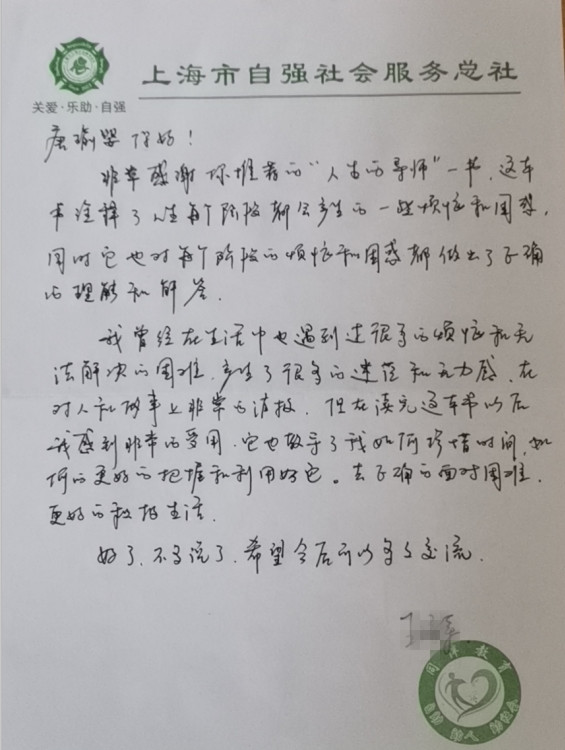 上海市自强社会服务总社
关爱·乐助·自强
唐瑜婴你好！
非常感谢你推荐的“人生的导师”一书，这本
书诠释了人生每个阶段都会产生的一些烦恼和困惑，
同时它也对每个阶段的烦恼和困惑都做出了正确
的理解和解答。
我曾经在生活中也遇到过很多的烦恼和无
法解决的困难，产生了很多的迷茫和无力感，在
对人和做事上非常的消极，但在读完这本书以后
我感到非常的受用，它也教导了我如何珍惜时间，如
何的更好的把握和利用好它。去正确的面对困难，
更好的积极生活。
好了，不多说了，希望今后可以多多交流。
王
同伴教育